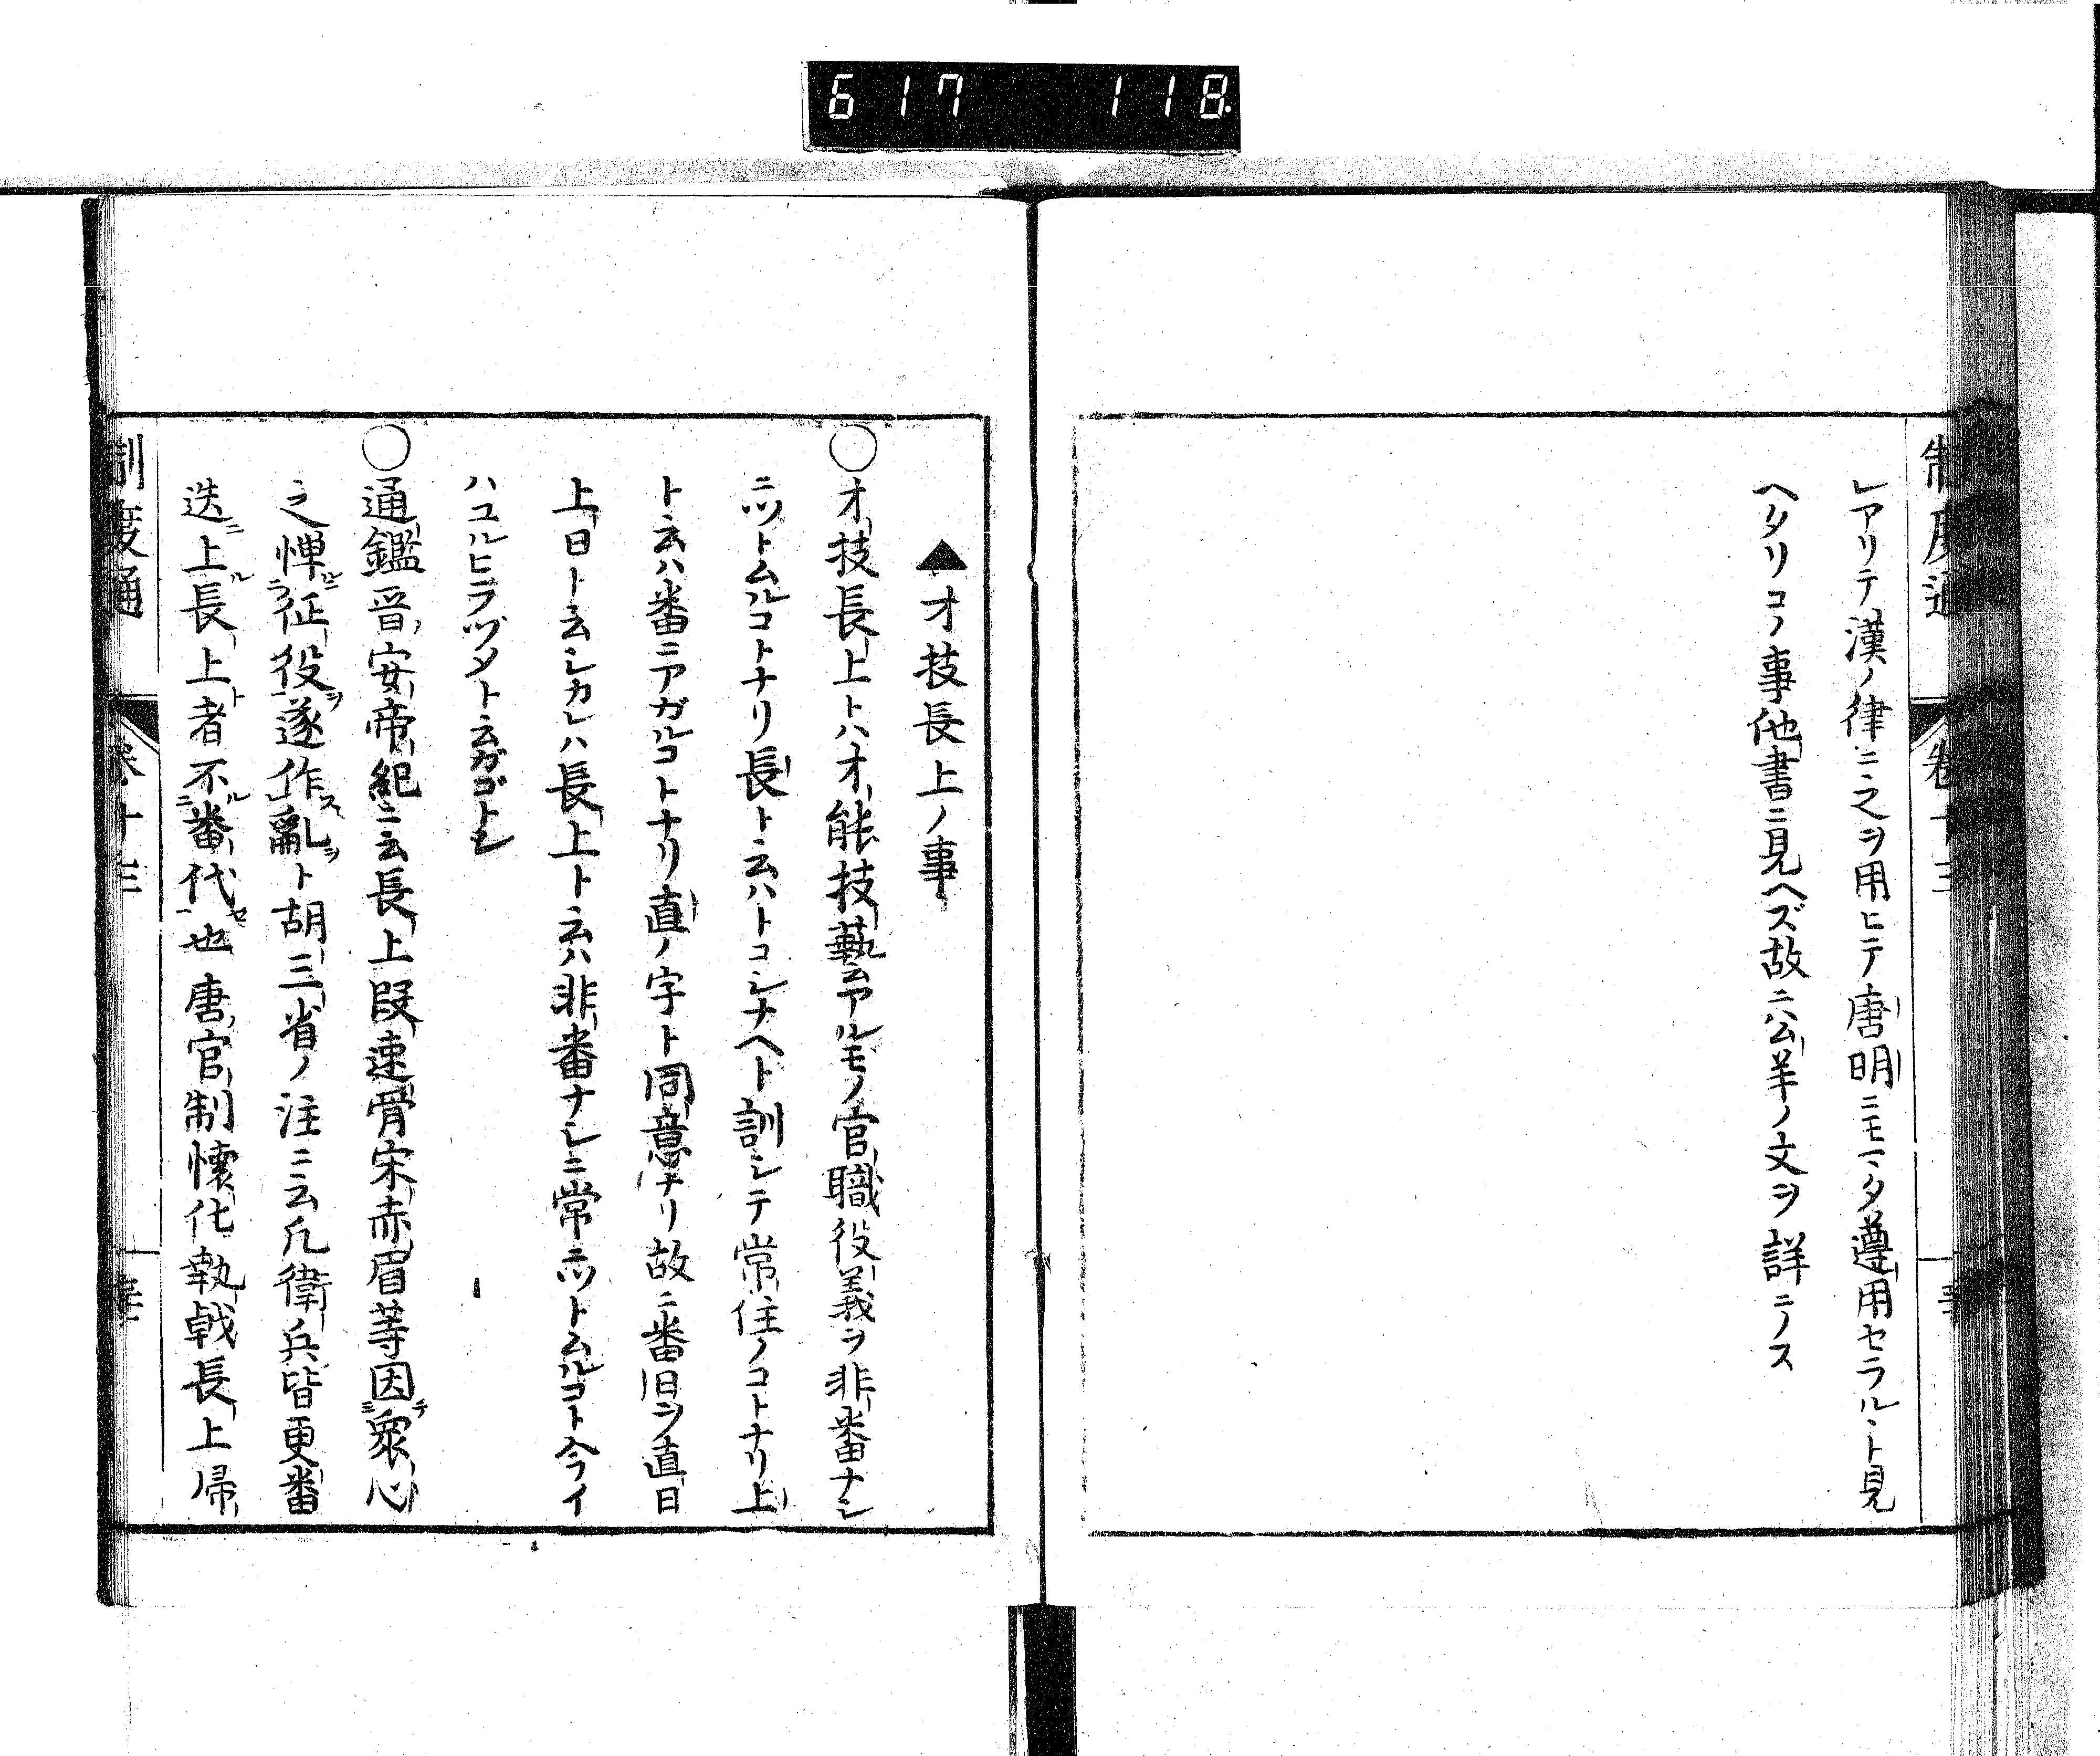 617 118
制度通 卷十三
レアリテ漢ノ律ニ之ヲ用ヒテ唐明ニモマタ遵用セラルヽト見
ヘタリコノ事他書ニ見ヘズ故ニ公羊ノ文ヲ詳ニノス
▲才技長上ノ事
○才技長上トハ才能技藝アルモノ官職役義ヲ非番ナシ
ニツトムルコトナリ長ト云ハトコシナヘト訓シテ常住ノコトナリ上
ト云ハ番ニアガルコトナリ直ノ字ト同意ナリ故ニ番日ヲ直日
上日ト云シカレハ長上ト云ハ非番ナシニ常ニツトムルコト今イ
ハユルヒラヅメト云ガゴトシ
○通鑑晉安帝紀ニ云長上段速骨宋赤眉等因テ衆心
之憚ルニ征役ヲ遂作ス亂ヲト胡三省ノ注ニ云凡衛兵皆更番
迭ニ上ル長上ト者不番ルニ代セ也唐官制懷化執戟長上歸
制度通 卷十三